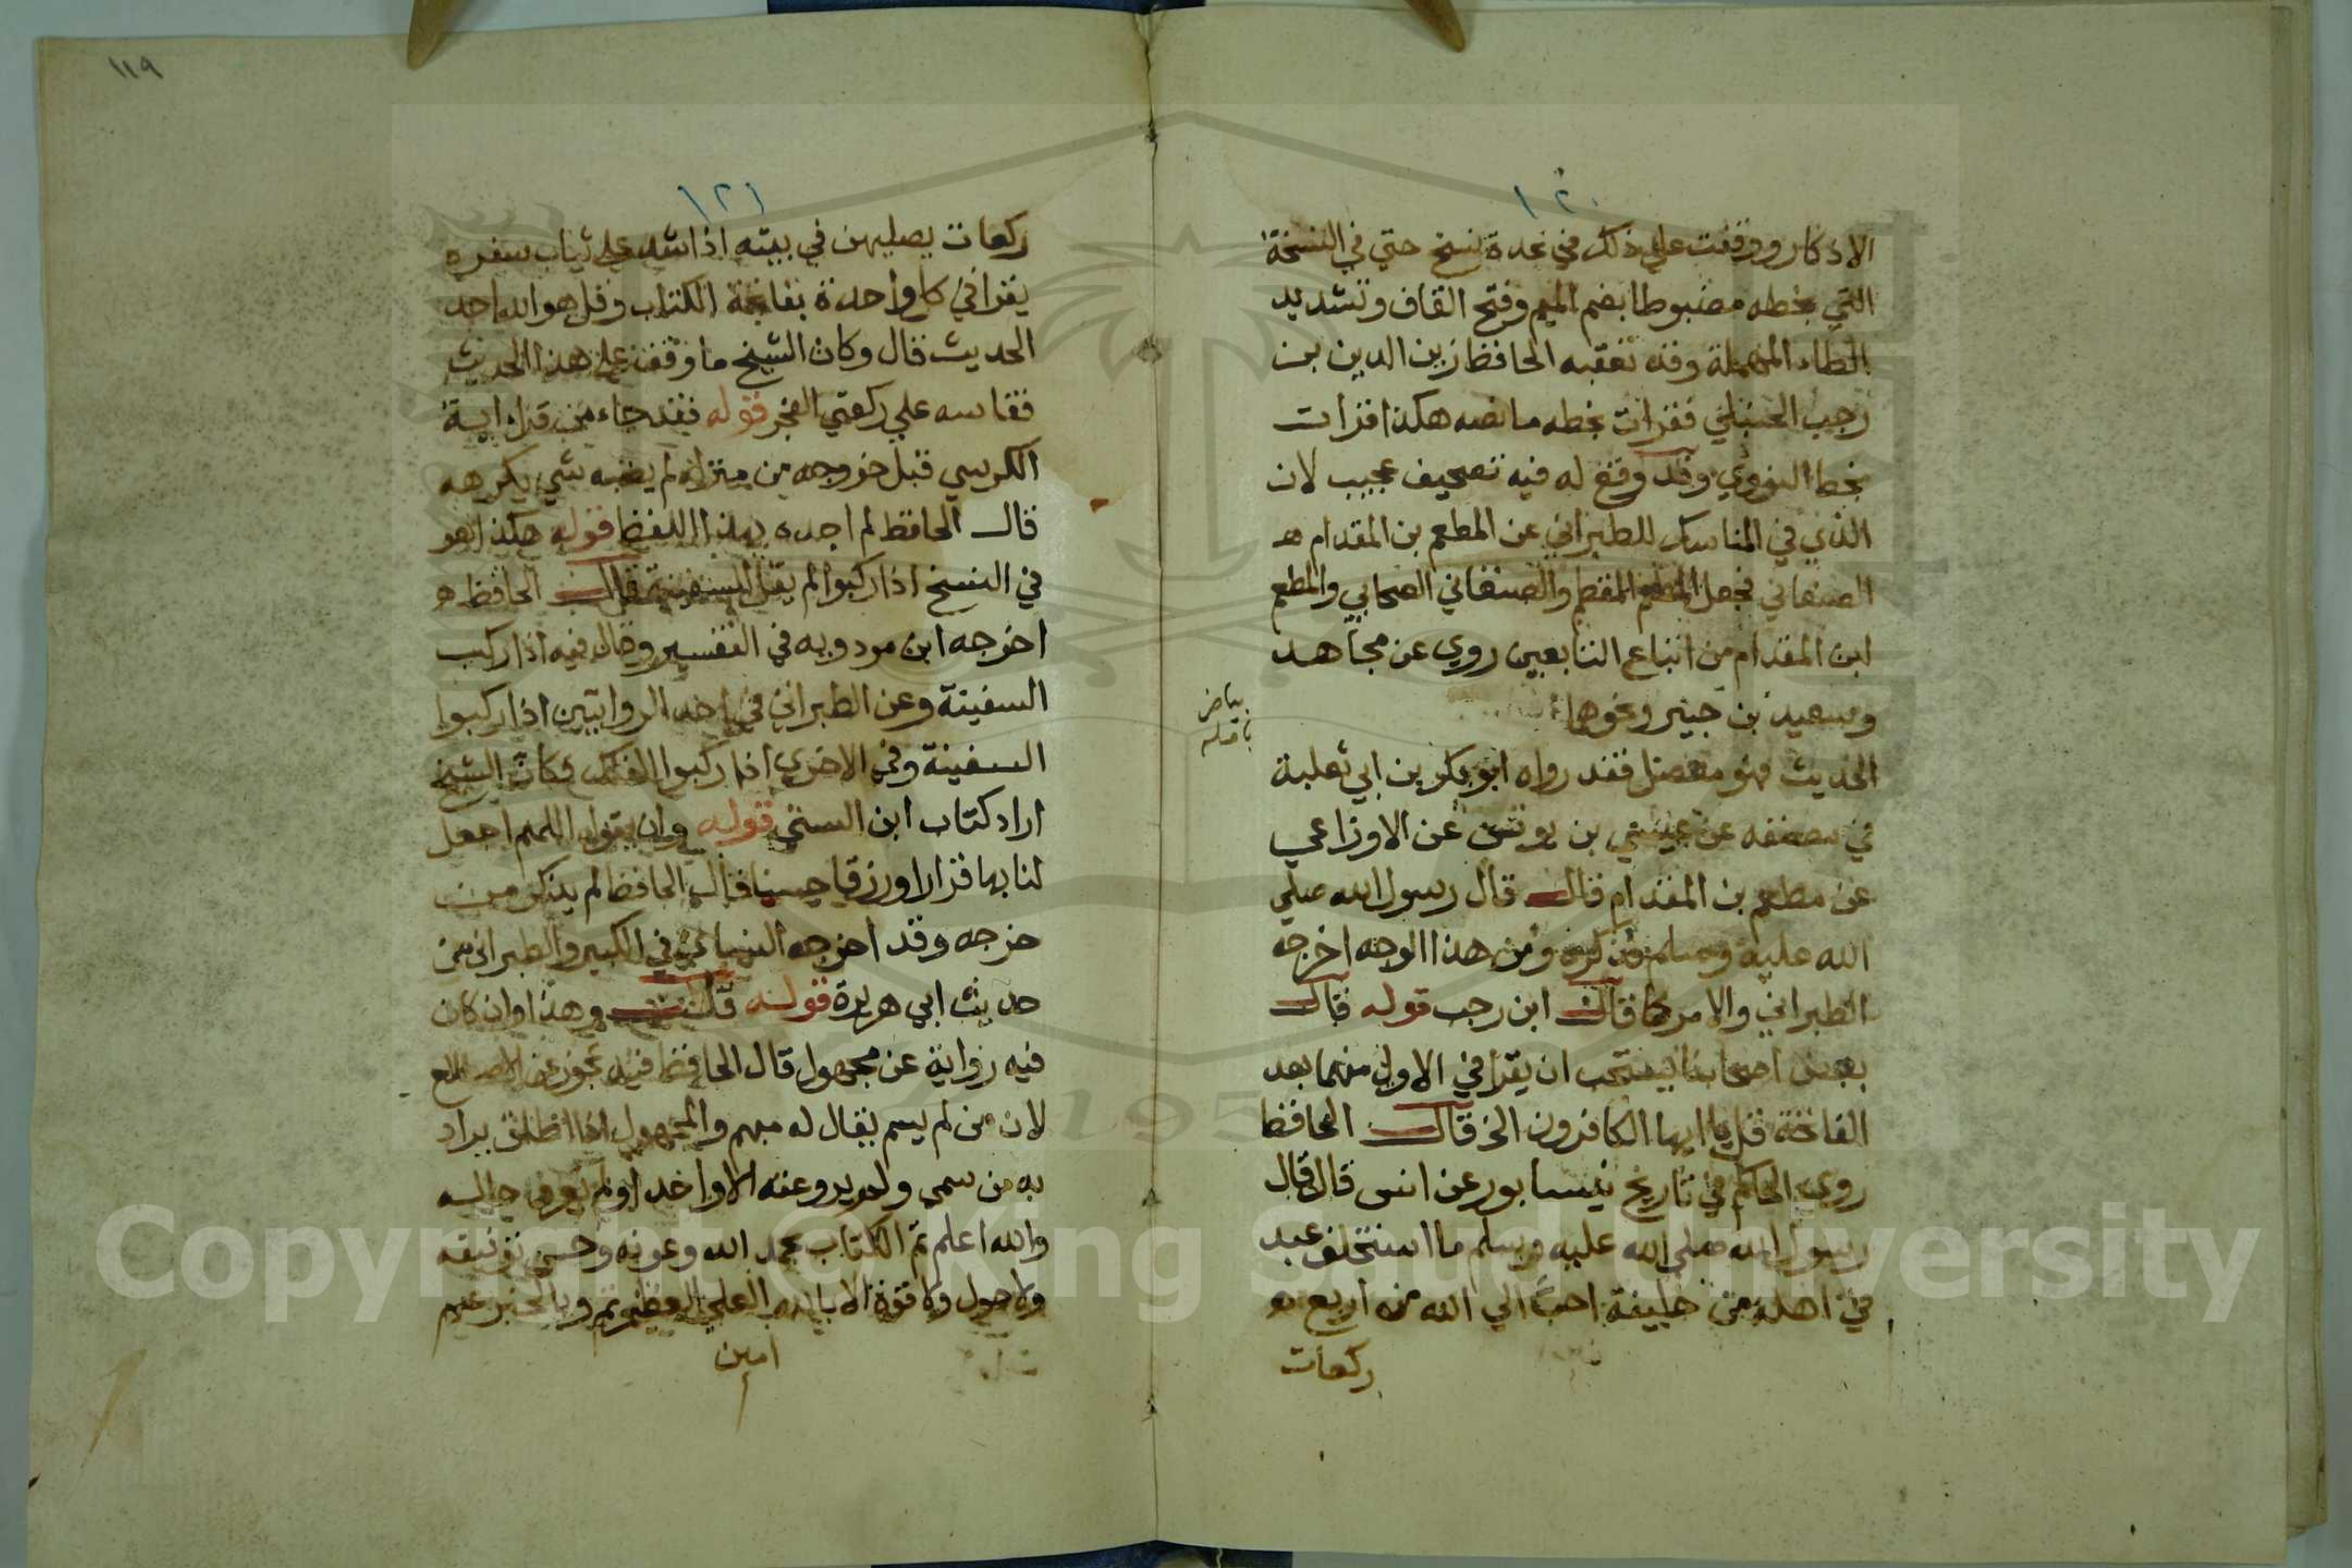 ١٢٠
الاذكار ووقفت علي ذلك في عدة نسخ حتي في النسخة
التي بخطه مضبوطا بضم الميم وفتح القاف وتشديد
الطاء المهملة وقد تعقبه الحافظ زين الدين بن
رجب الحنبلي فقرات بخطه ما نصه هكذا قرات
بخط النووي وقد وقع له فيه تصحيف عجيب لان
الذي في المناسك للطبراني عن المطعم بن المقدام هـ
الصنعاني فجعل المطعم المقطم والصنعاني الصحابي والمطعم
ابن المقدام من اتباع التابعين روي عن مجاهد
وسعيد بن جبير ونحوهما
بياض
باصله
الحديث فهو معضل فقد رواه ابو بكر بن ابي ثعلبة
في مصنفه عن عيسي بن يونس عن الاوزاعي
عن مطعم بن المقدام قال قال رسول الله صلي
الله عليه وسلم فذكره ومن هذا الوجه اخرجه
الطبراني والامر كما قال ابن رجب قوله قال
بعض اصحابنا يستحب ان يقرا في الاولي منهما بعد
الفاتحة قل يا ايها الكافرون الخ قال الحافظ
روي الحاكم في تاريخ نيسابور عن انس قال قال
رسول الله صلي الله عليه وسلم ما استخلف عبد
في اهله من خليفة احب الي الله من اربع هـ
ركعات
١١٩
١٢١
ركعات يصليهن في بيته اذا شد علي ثياب سفره
يقرا في كل واحدة بفاتحة الكتاب وقل هو الله احد
الحديث قال وكان الشيخ ما وقف علي هذا الحديث
فقاسه علي ركعتي الفجر قوله فقد جاء من قرا اية
الكرسي قبل خروجه من منزله لم يصبه شي يكرهه
قال الحافظ لم اجده بهذا اللفظ قوله هكذا هو
في النسخ اذا ركبوا لم يقل السفينة قال الحافظ هـ
اخرجه ابن مردويه في التفسير وقال فيه اذا ركب
السفينة وعن الطبراني في احد الروايتين اذا ركبوا
السفينة وفي الاخري اذا ركبوا الفلك فكان الشيخ
اراد كتاب ابن السني قوله وان يقول اللهم اجعل
لنا بها قرارا ورزقا حسنا قال الحافظ لم يذكر من
خرجه وقد اخرجه النسائي في الكبير والطبراني من
حديث ابي هريرة قوله قلت وهذا وان كان
فيه رواية عن مجهول قال الحافظ فيه تجوز عن الاصطلاح
لان من لم يسم يقال له مبهم والمجهول اذا اطلق يراد
به من سمي ولم يرو عنه الا واحد او لم يعرف حاله
والله اعلم تم الكتاب بحمد الله وعونه وحسن توفيقه
ولا حول ولا قوة الا بالله العلي العظيم تم وبالخير عم
امين